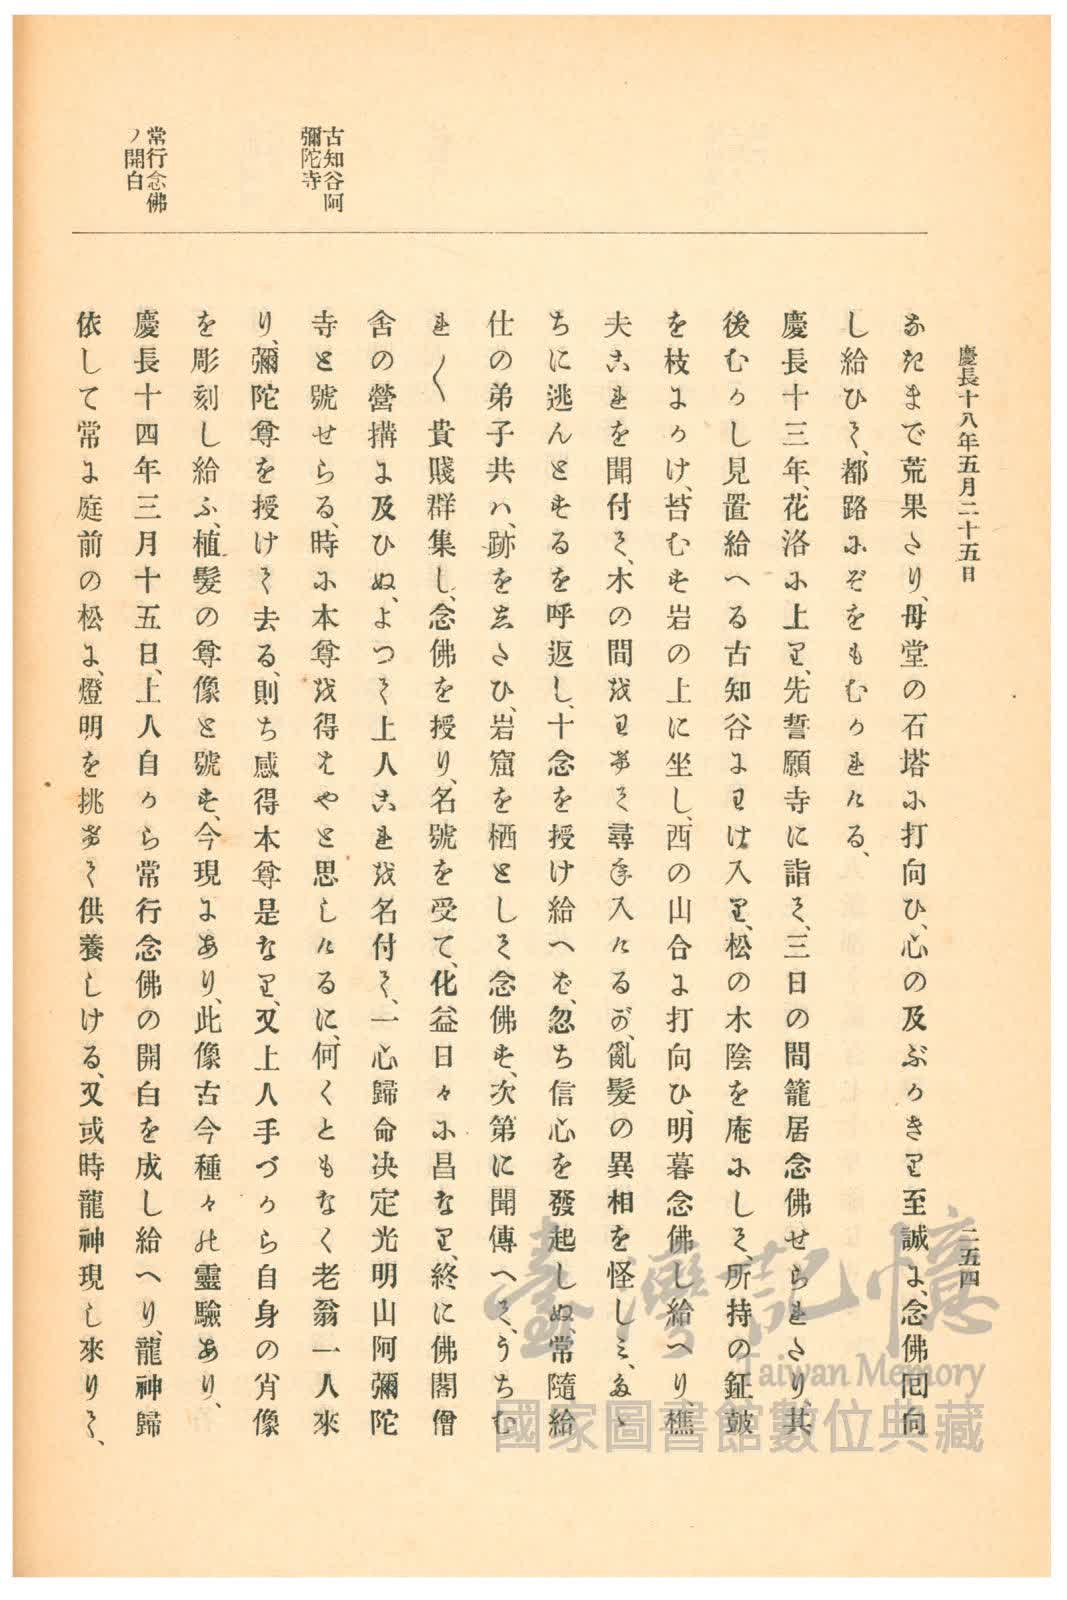 慶長十八年五月二十五日　二五四
なきまで荒果たり、母堂の石塔に打向ひ、心の及ぶかきり至誠に、念佛囘向
し給ひて、都路にぞをもむかれける、
慶長十三年、花洛に上り、先誓願寺に詣て、三日の間籠居念佛せられたり、其
後むかし見置給へる古知谷にわけ入り、松の木陰を庵にして、所持の鉦鼓
を枝にかけ、苔むす岩の上に坐し、西の山合に打向ひ、明暮念佛し給へり、樵
夫これを聞付て、木の間をわけて尋ね入けるが、亂髮の異相を怪しミ、たゝ
ちに逃んとするを呼返し、十念を授け給へば、忽ち信心を發起しぬ、常隨給
仕の弟子共ハ、跡をしたひ、岩窟を栖として念佛す、次第に聞傳へて、うちむ
れ〳〵貴賤群集し、念佛を授り、名號を受て、化益日々に昌なり、終に佛閣僧
古知谷阿
彌陀寺
舍の營搆に及ひぬ、よつて上人これを名付て、一心歸命决定光明山阿彌陀
寺と號せらる、時に本尊を得はやと思しけるに、何くともなく老翁一人來
り、彌陀尊を授けて去る、則ち感得本尊是なり、又上人手づから自身の肖像
を彫刻し給ふ、植髮の尊像と號す、今現にあり、此像古今種々の靈驗あり、
常行念佛
ノ開白
慶長十四年三月十五日、上人自から常行念佛の開白を成し給へり、龍神歸
依して常に庭前の松に、燈明を挑げて供養しける、又或時龍神現し來りて、
臺灣記憶
Taiwan Memory
國家圖書館數位典藏